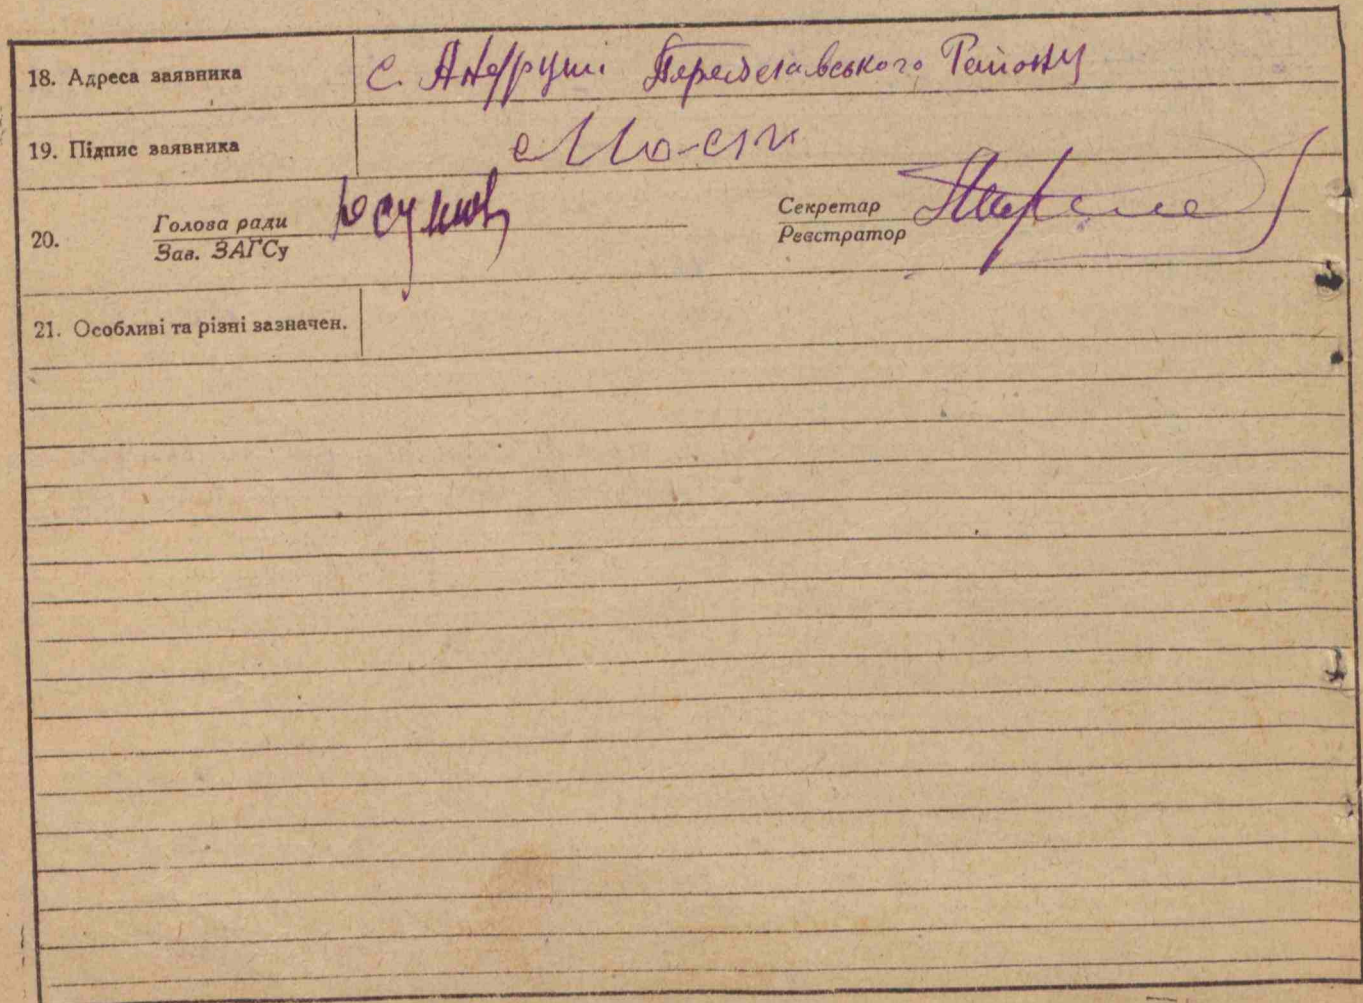 18. Адреса заявника с. Андруши Переяславського Району
19. Підпис заявника
20. Голова ради Секретар
Зав. ЗАГСу Реєстратор
21. Особливі та різні зазначен.